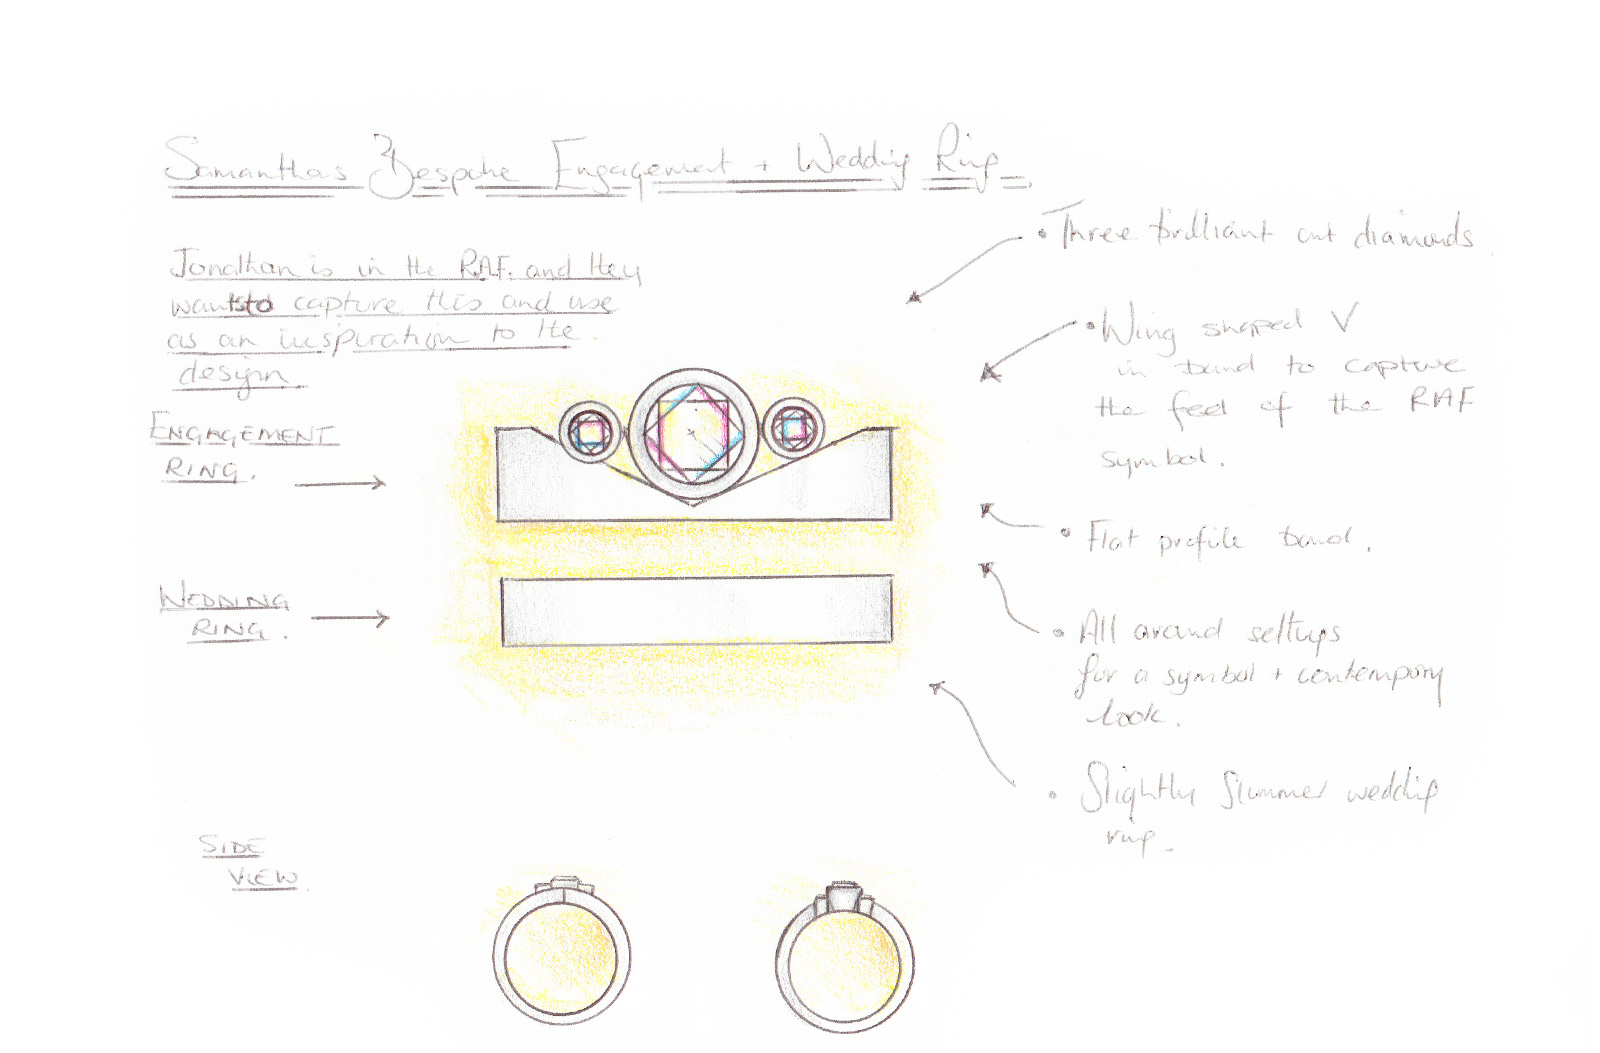 Samanthas Bespoke Engagement + Wedding Ring
Jonathan is in the RAF. and they
wantsto capture this and use
as an inspiration to the
design
ENGAGEMENT
RING.
WEDDING
RING.
SIDE
VIEW.
• Three brilliant cut diamonds.
• Wing shaped V
in band to capture
the feel of the RAF
symbol.
• Flat profile band.
• All around settings
for a symbol + contempory
look.
• Slightly slimmer wedding
ring.